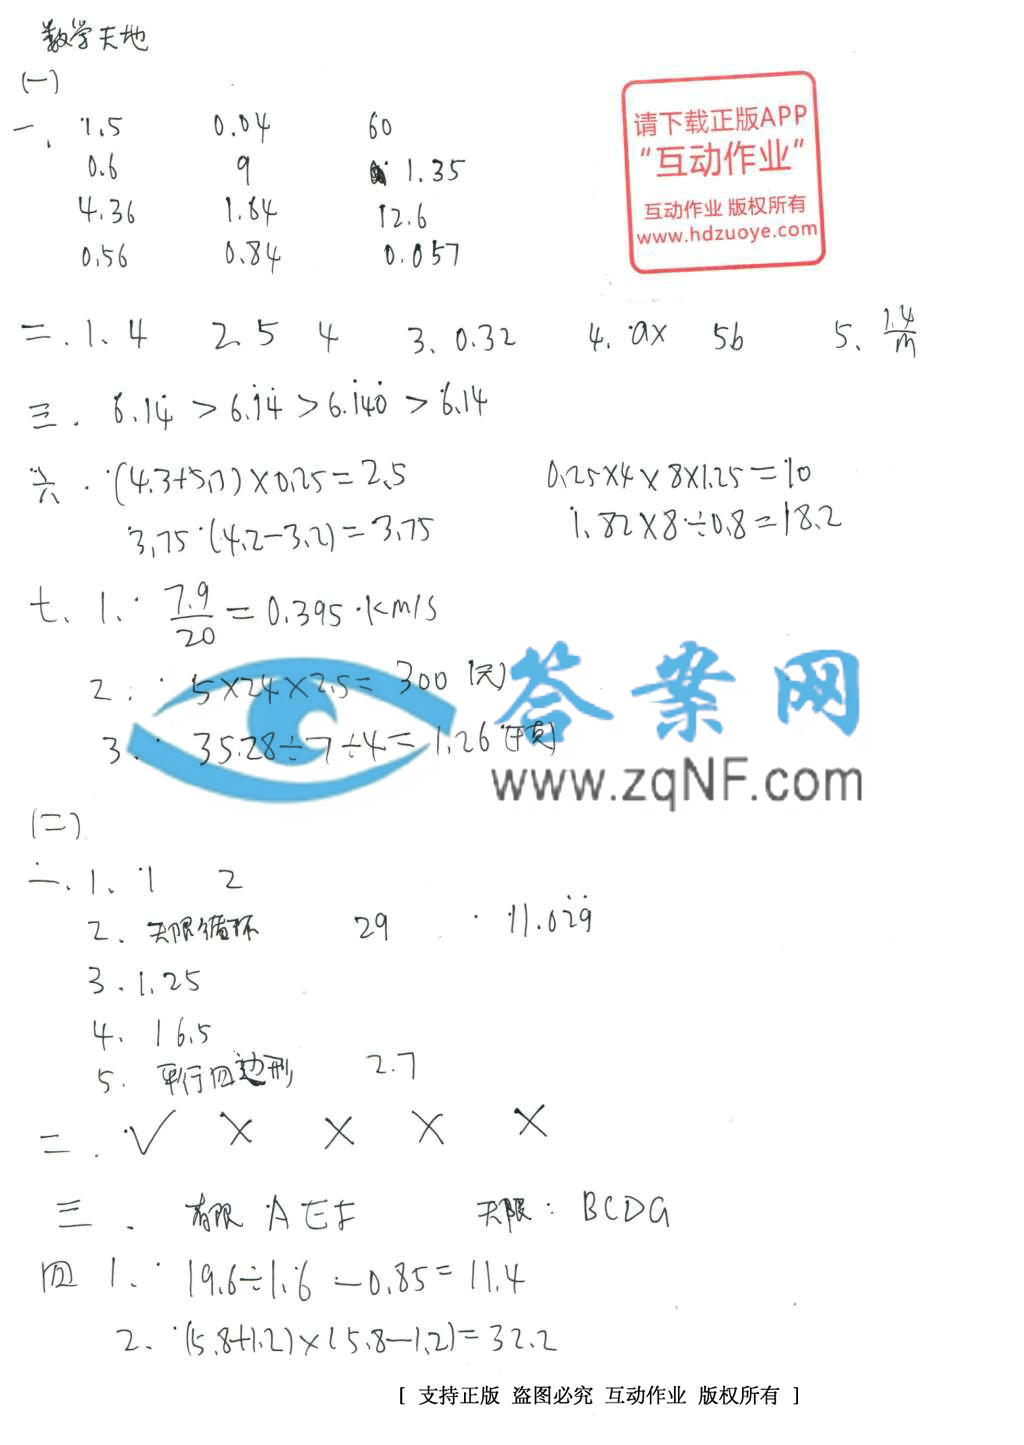 数学天地
(一)
一. 1.5 0.04 60
0.6 9 1.35
4.36 1.64 12.6
0.56 0.84 0.057
请下载正版APP
“互动作业”
互动作业 版权所有
www.hdzuoye.com
二. 1. 4 2. 5 4 3. 0.32 4. ax 5b 5. 1.4/m
三. 6.14̇ > 6.1̇4̇ > 6.1̇40̇ > 6.14
六. (4.3+5.7)×0.25=2.5 0.25×4×8×1.25=10
3.75·(4.2-3.2)=3.75 1.82×8÷0.8=18.2
七. 1. 7.9/20 = 0.395 km/s
2. 5×24×2.5= 300 (元)
3. 35.28÷7÷4= 1.26 (千克)
答案网
www.zqNF.com
(二)
一. 1. 1 2
2. 无限循环 29 11.02̇9̇
3. 1.25
4. 16.5
5. 平行四边形 2.7
二. √ × × × ×
三. 有限 A E F 无限: BCDG
四 1. 19.6÷1.6 -0.85=11.4
2. (5.8+1.2)×(5.8-1.2)=32.2
[ 支持正版 盗图必究 互动作业 版权所有 ]